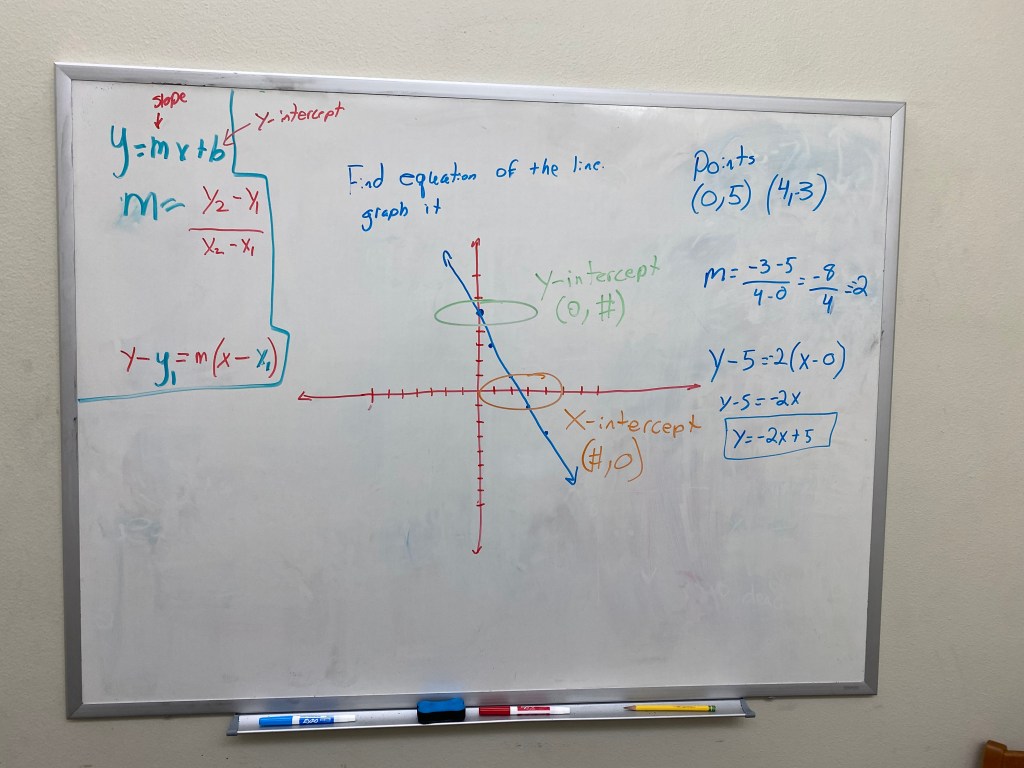 slope
y=mx+b
Y-intercept
m=
Y₂-Y₁
X₂-X₁
Y-y₁=m(x-X₁)
Find equation of the line.
graph it
Y-intercept
(0,#)
X-intercept
(#,0)
Points
(0,5) (4,-3)
m= -3-5 / 4-0 = -8 / 4 =-2
Y-5=-2(x-0)
y-5=-2x
Y=-2x+5
EXPO